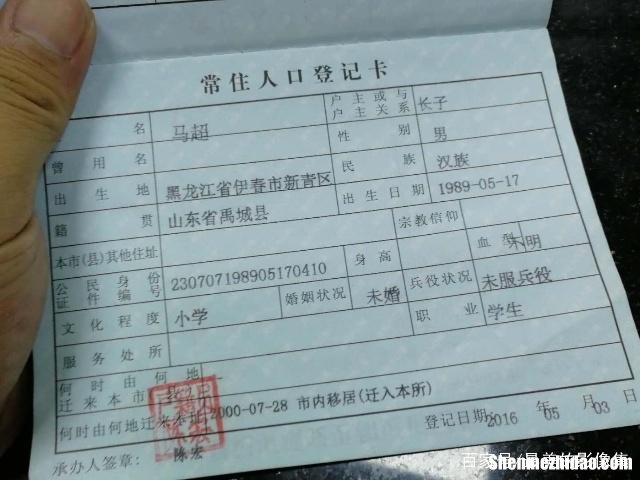 常住人口登记卡
名 马超 户主或与户主关系 长子
曾用名 性别 男
出生地 黑龙江省伊春市新青区 民族 汉族
籍贯 山东省禹城县 出生日期 1989-05-17
本市(县)其他住址 宗教信仰
公民身份证件编号 230707198905170410 身高 血型 不明
文化程度 小学 婚姻状况 未婚 兵役状况 未服兵役
服务处所 职业 学生
何时由何地迁来本市
何时由何地迁来本址 2000-07-28 市内移居(迁入本所)
承办人签章: 陈宏 登记日期: 2016 年 05 月 03 日
百家号
Shenmezhidao.com